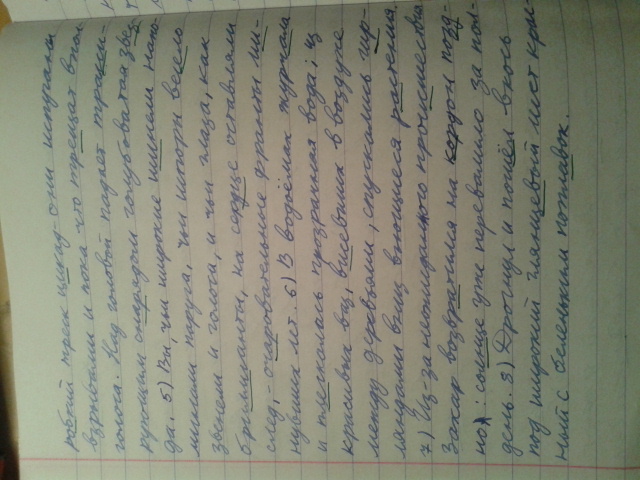 робкий треск цикад – они испугали
взрывами и пока что трещат впол-
голоса. Над головой падает трасси-
рующим снарядом голубоватая звез-
да. 5) Вы, чьи широкие шинели напо-
минали паруса, чьи шпоры весело
звенели и голоса, и чьи глаза, как
бриллианты, на сердце оставляли
след, – очаровательные франты ми-
нувших лет. 6) В водоёмах журчала
и плескалась прозрачная вода; из
красивых ваз, висевших в воздухе
между деревьями, спускались гир-
ляндами вниз вьющиеся растения.
7) Из-за неожиданного происшествия
Захар возвратился на кордон позд-
но: солнце уже перевалило за пол-
день. 8) Дрогнул и пошёл вплавь
под широкий глянцевый лист крас-
ный с селеньким поплавок.